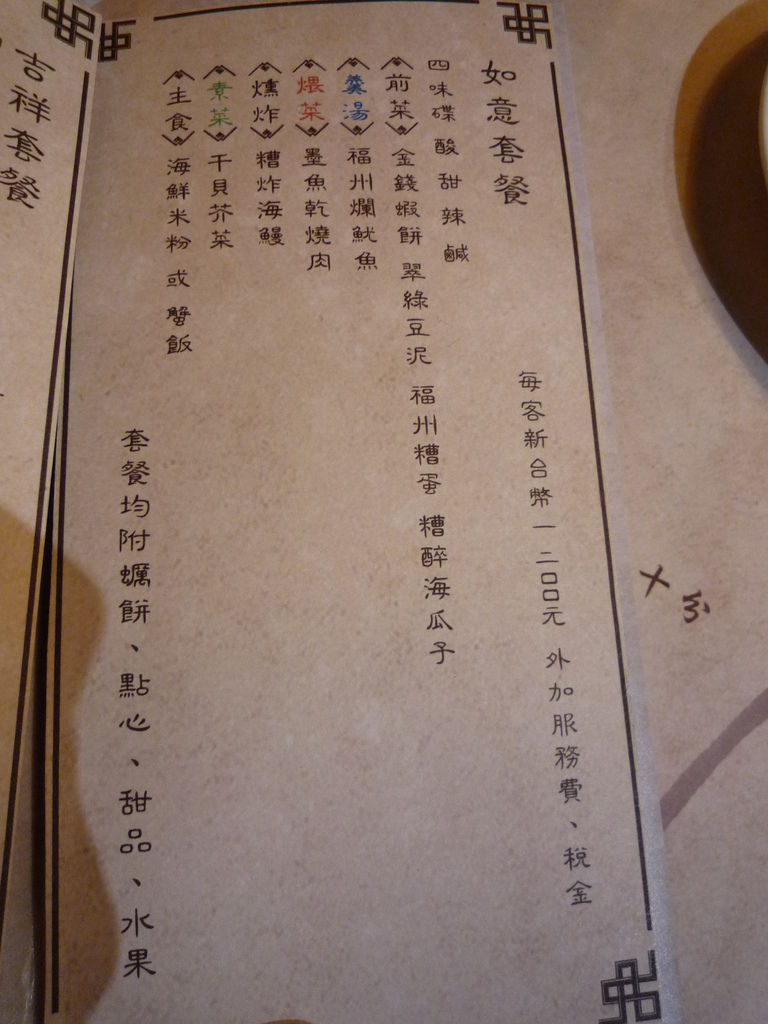 如意套餐
每客新台幣一二〇〇元 外加服務費、稅金
四味碟 酸 甜 辣 鹹
前菜 金錢蝦餅 翠綠豆泥 福州糟蛋 糟醉海瓜子
羹湯 福州爛魷魚
煨菜 墨魚乾燒肉
燻炸 糟炸海鰻
素菜 干貝芥菜
主食 海鮮米粉 或 蟹飯
套餐均附蠣餅、點心、甜品、水果
吉祥套餐